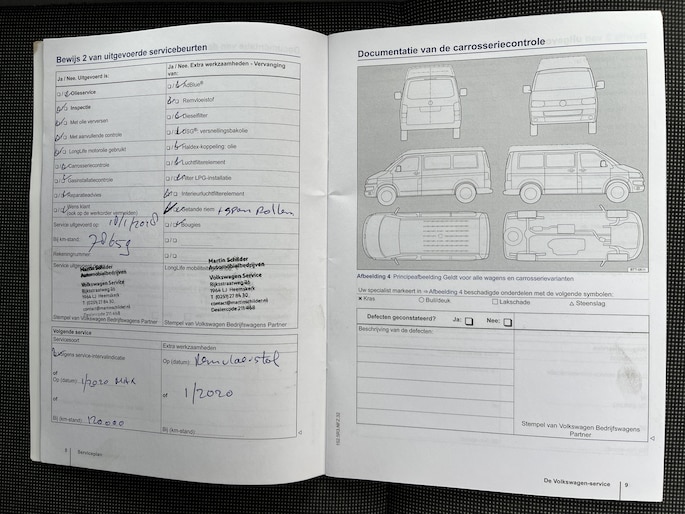 Bewijs 2 van uitgevoerde servicebeurten
Ja / Nee. Uitgevoerd is:
Olieservice
Inspectie
Met olie verversen
Met aanvullende controle
LongLife motorolie gebruikt
Carrosseriecontrole
Gasinstallatiecontrole
Reparatieadvies
Wens klant
(ook op de werkorder vermelden)
Service uitgevoerd op: 18/1/2018
Bij km-stand: 78659
Rekeningnummer:
Service uitgevoerd door:
Martin Schilder
Automobielbedrijven
Volkswagen Service
Rijksstraatweg 46
1964 LJ Heemskerk
T. (0)251 27 84 30
contact@martinschilder.nl
Dealercode 211 468
Stempel van Volkswagen Bedrijfswagens Partner
Ja / Nee. Extra werkzaamheden - Vervanging
van:
AdBlue®
Remvloeistof
Dieselfilter
DSG®: versnellingsbakolie
Haldex-koppeling: olie
Luchtfilterelement
Filter LPG-installatie
Interieurluchtfilterelement
Getande riem + span rollen
Bougies
LongLife mobiliteit
Martin Schilder
Automobielbedrijven
Volkswagen Service
Rijksstraatweg 46
1964 LJ Heemskerk
T. (0)251 27 84 30
contact@martinschilder.nl
Dealercode 211 468
Stempel van Volkswagen Bedrijfswagens Partner
Volgende service
Servicesoort
Volgens service intervalindicatie
of
Op (datum): 1/2020 MAX
of
Bij (km-stand): 120000
Extra werkzaamheden
Op (datum): Remvloeistof
of 1/2020
Bij (km-stand):
8 Serviceplan
Documentatie van de carrosseriecontrole
Afbeelding 4 Principeafbeelding Geldt voor alle wagens en carrosserievarianten
Uw specialist markeert in ⇒ Afbeelding 4 beschadigde onderdelen met de volgende symbolen:
× Kras ○ Buil/deuk □ Lakschade △ Steenslag
Defecten geconstateerd? Ja: Nee:
Beschrijving van de defecten:
Stempel van Volkswagen Bedrijfswagens
Partner
De Volkswagen-service 9